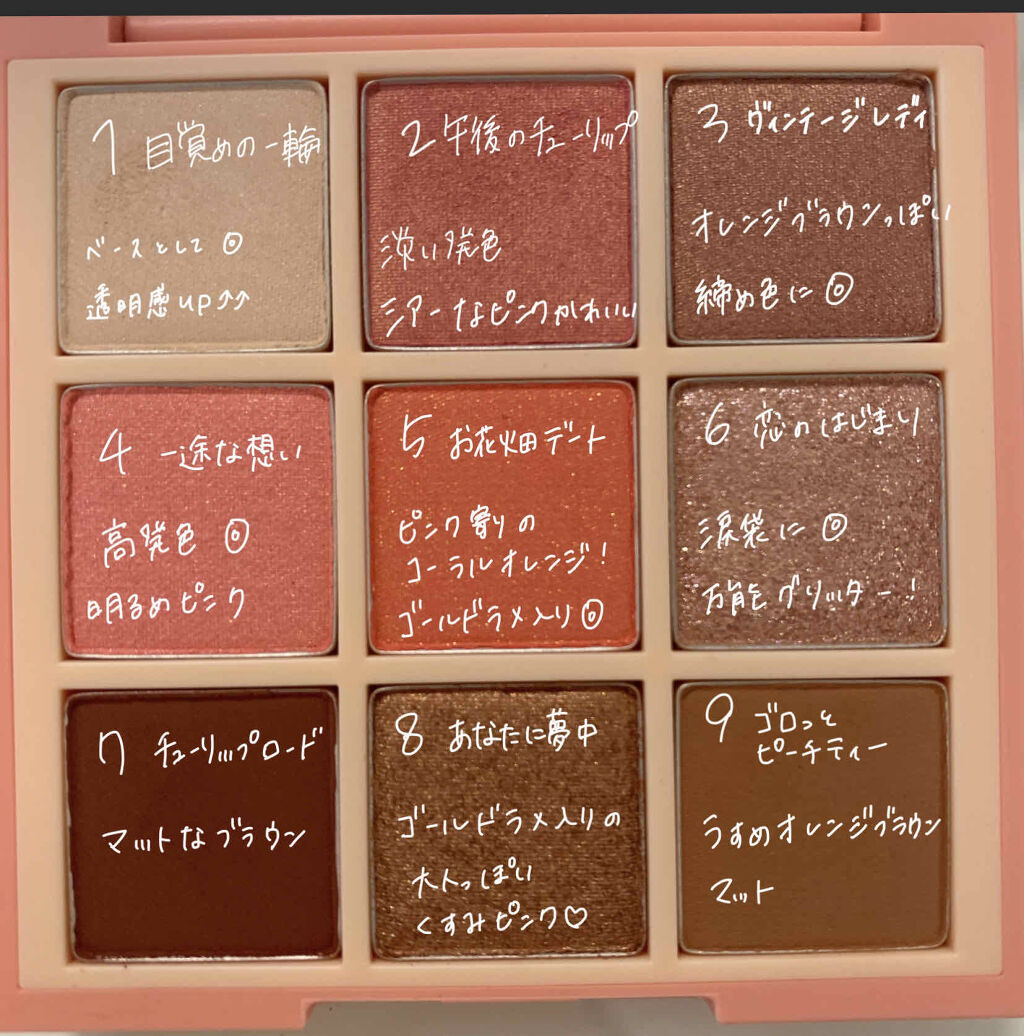 1 目覚めの一輪
ベースとして◎
透明感up↑↑
2 午後のチューリップ
淡い発色
シアーなピンクかわいい
3 ヴィンテージレディ
オレンジブラウンっぽい
締め色に◎
4 一途な想い
高発色◎
明るめピンク
5 お花畑デート
ピンク寄りの
コーラルオレンジ!
ゴールドラメ入り◎
6 恋のはじまり
涙袋に◎
万能グリッター!
7 チューリップロード
マットなブラウン
8 あなたに夢中
ゴールドラメ入りの
大人っぽい
くすみピンク♡
9 ゴロっと
ピーチティー
うすめオレンジブラウン
マット